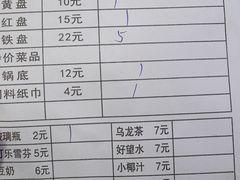 黄盘 10元 1
红盘 15元 1
铁盘 22元 5
特价菜品
锅底 12元 1
调料纸巾 4元 1
玻璃瓶 2元 1 乌龙茶 7元
可乐雪芬 5元 好望水 7元
豆奶 6元 小椰汁 7元